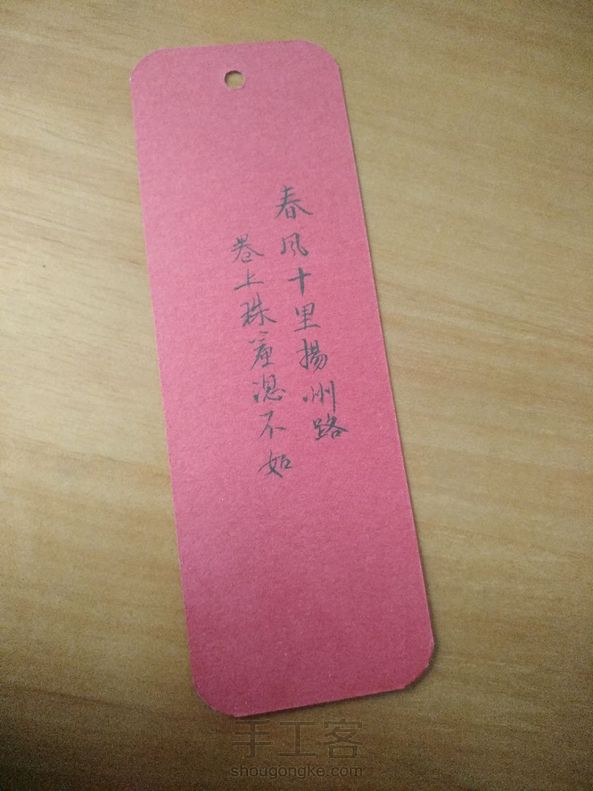 春風十里揚州路
卷上珠簾總不如
手工客
shougongke.com